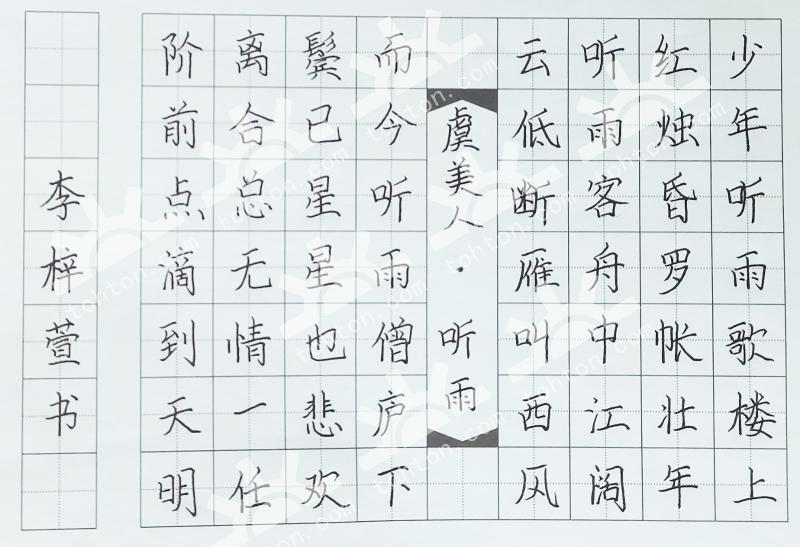 少年听雨歌楼上
红烛昏罗帐壮年
听雨客舟中江阔
云低断雁叫西风
虞美人·听雨
而今听雨僧庐下
鬓已星星也悲欢
离合总无情一任
阶前点滴到天明
李梓萱书
tohton.com